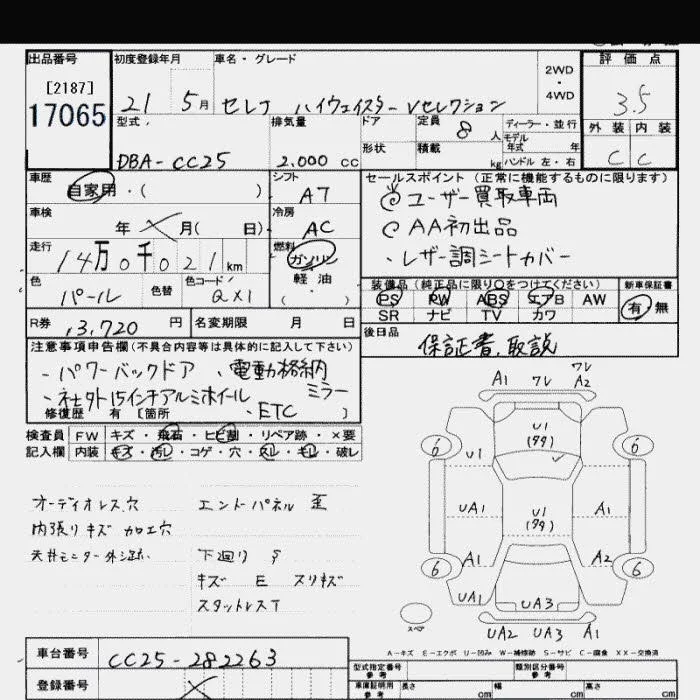 出品番号 初度登録年月 車名・グレード 2WD・4WD 評価点
[2187]
17065
21 5月 セレナ ハイウェイスターVセレクション 3.5
型式 排気量 ドア 定員 8人 ディーラー・並行 外装 内装
モデル年式 年
DBA-CC25 2.000 cc 形状 積載 kg ハンドル 左・右 C C
車歴 自家用・( ) シフト A7 セールスポイント (正常に機能するものに限ります)
ユーザー買取車両
車検 年 月( 日) 冷房 AC AA初出品
走行 14万0千021km 燃料 ガソリン ・レザー調シートカバー
軽油
( )
色 パール 色替 色コード QX1 装備品(純正品に限り○をつけてください) 新車保証書
PS PW ABS エアB AW 有・無
SR ナビ TV カワ
R券 13,720円 名変期限 月 日 後日品
保証書、取説
注意事項申告欄(不具合内容等は具体的に記入して下さい)
・パワーバックドア ・電動格納ミラー
・社外15インチアルミホイール
修復歴 有 [箇所 ・ETC ]
検査員 FW キズ・飛石・ヒビ割・リペア跡・×要
記入欄 内装 キズ・汚レ・コゲ・穴・スレ・キレ・破レ
オーディオレス穴 エンドパネル 歪
内張りキズ 加工穴
天井モニター外し跡 下廻り S
キズ E スリキズ
スタットレスT
A1 ワレ ワレ A2
U1
(タタ)
6 6
U1
UA1 U1 A1
(タタ)
A1 A2
6 6
UA1 UA3
スペア
UA2 UA3 A1
A-キズ E-エクボ U-凹み W-補修跡 S-サビ C-腐食 XX-交換済
車台番号 CC25-282263
登録番号
型式指定番号 参考 類別区分番号 参考
車庫証明用 参考 長さ cm 幅 cm 高さ cm